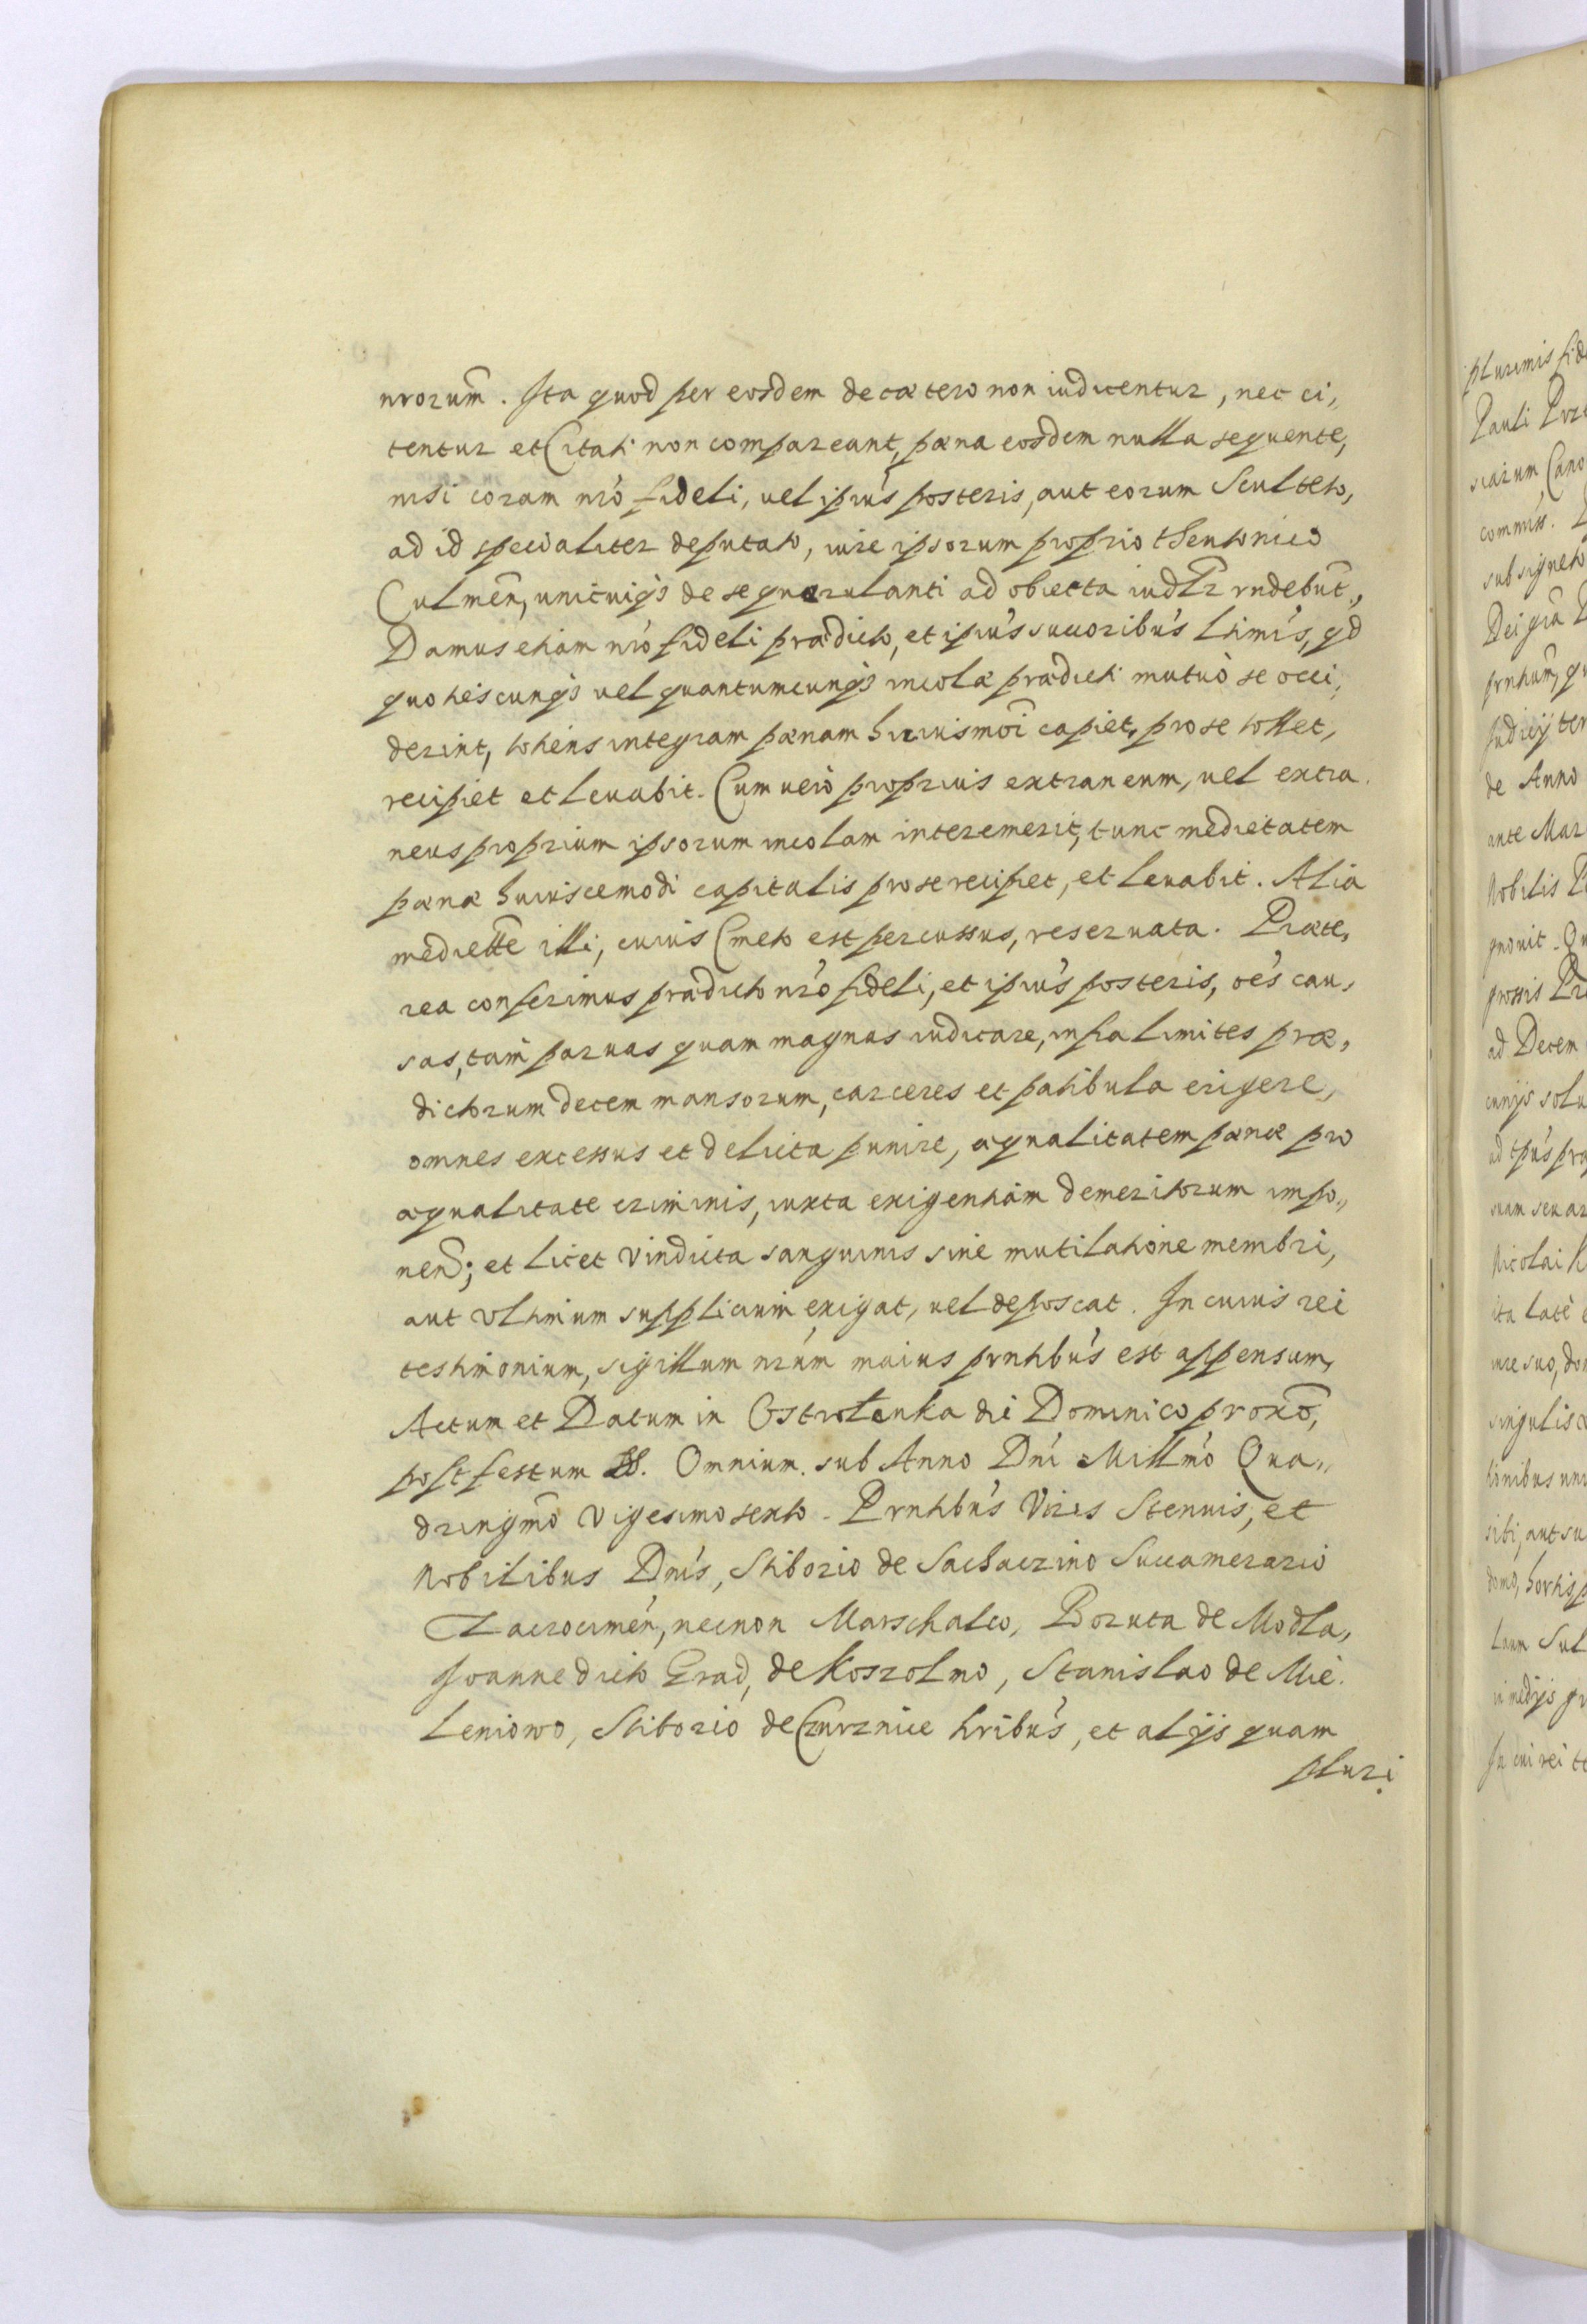 nrorum̃. Ita quod per eosdem de cætero non iudicentur, nec ci,,
tentur et Citati non compareant, pæna eosdem nulla sequente,
nisi coram nr̃o fideli, uel ipiu's posteris, aut eorum Sculteto,
ad id specialiter deputato, iure ipsorum proprio theutonico
Culmeñ, unicuiqs de se quærulanti ad obiecta iudlr rndebunt,,
Damus etiam nr̃o fideli prædicto, et ipiu's succoribu's ltimis, qd
quotiescunqs uel quantumcunqs incolæ prædicti mutuò se occi,,
derint, totiens integram pænam huiusmoi capiet, pro se tollet,
recipiet et leuabit. Cum uerò proprius extraneum, uel extra
neus proprium ipsorum incolam interemerit, tunc medietatem
pænæ huiuscemodi capitalis pro se recipiet, et leuabit. Alia
mediette illi, cuius Cmeto est percussus, reseruata. Præte,
rea conferimus prædicto nr̃o fideli, et ipiu's posteris, oe's cau,
sas, tam paruas quam magnas iudicare, infra limites præ,
dictorum decem mansorum, carceres et patibula erigere,
omnes excessus et delicta punire, æqualitatem pænæ pro
æqualitate criminis, iuxta exigentiam demeritorum impo,,
nend; et licet vindicta sanguinis sine mutilatione membri,
aut vltimum supplicium exigat, uel deposcat. In cuius rei
testimonium, sigillum nrum maius prntibu's est appensum,
Actum et Datum in Ostrolenka die Dominico proxo,
post festum SS. Omnium. sub Anno Dni Millmo Qua,,
dringmo Vigesimo sexto. Prntibu's Viris Stenuis, et
Nobilibus Dni's, Stiborio de Sachaczino Succamerario
Zacrocimen, necnon Marschalco, Boruta de Modla,
Joanne dicto Grad, de Koszolmo, Stanislao de Mie.
leniowo, Stiborio de Czurznice hribu's, et alijs quam
pluri
plurimis fide
Pauli Prze
sciarum Cano
commiss.
subsigneto
Dei gra
prntium, qu
Judicij ter
de Anno
ante Mar
Nobilis
gnouit. Qu
grossis
ad Decem
cunijs solu
ad tpu's præ
suam seu ar
Nicolai
ita latè
iure suo, do
singulis
tionibus uni
sibi, aut su
domo, hortis, p
laum Sul
in medijs gr
In cui rei te